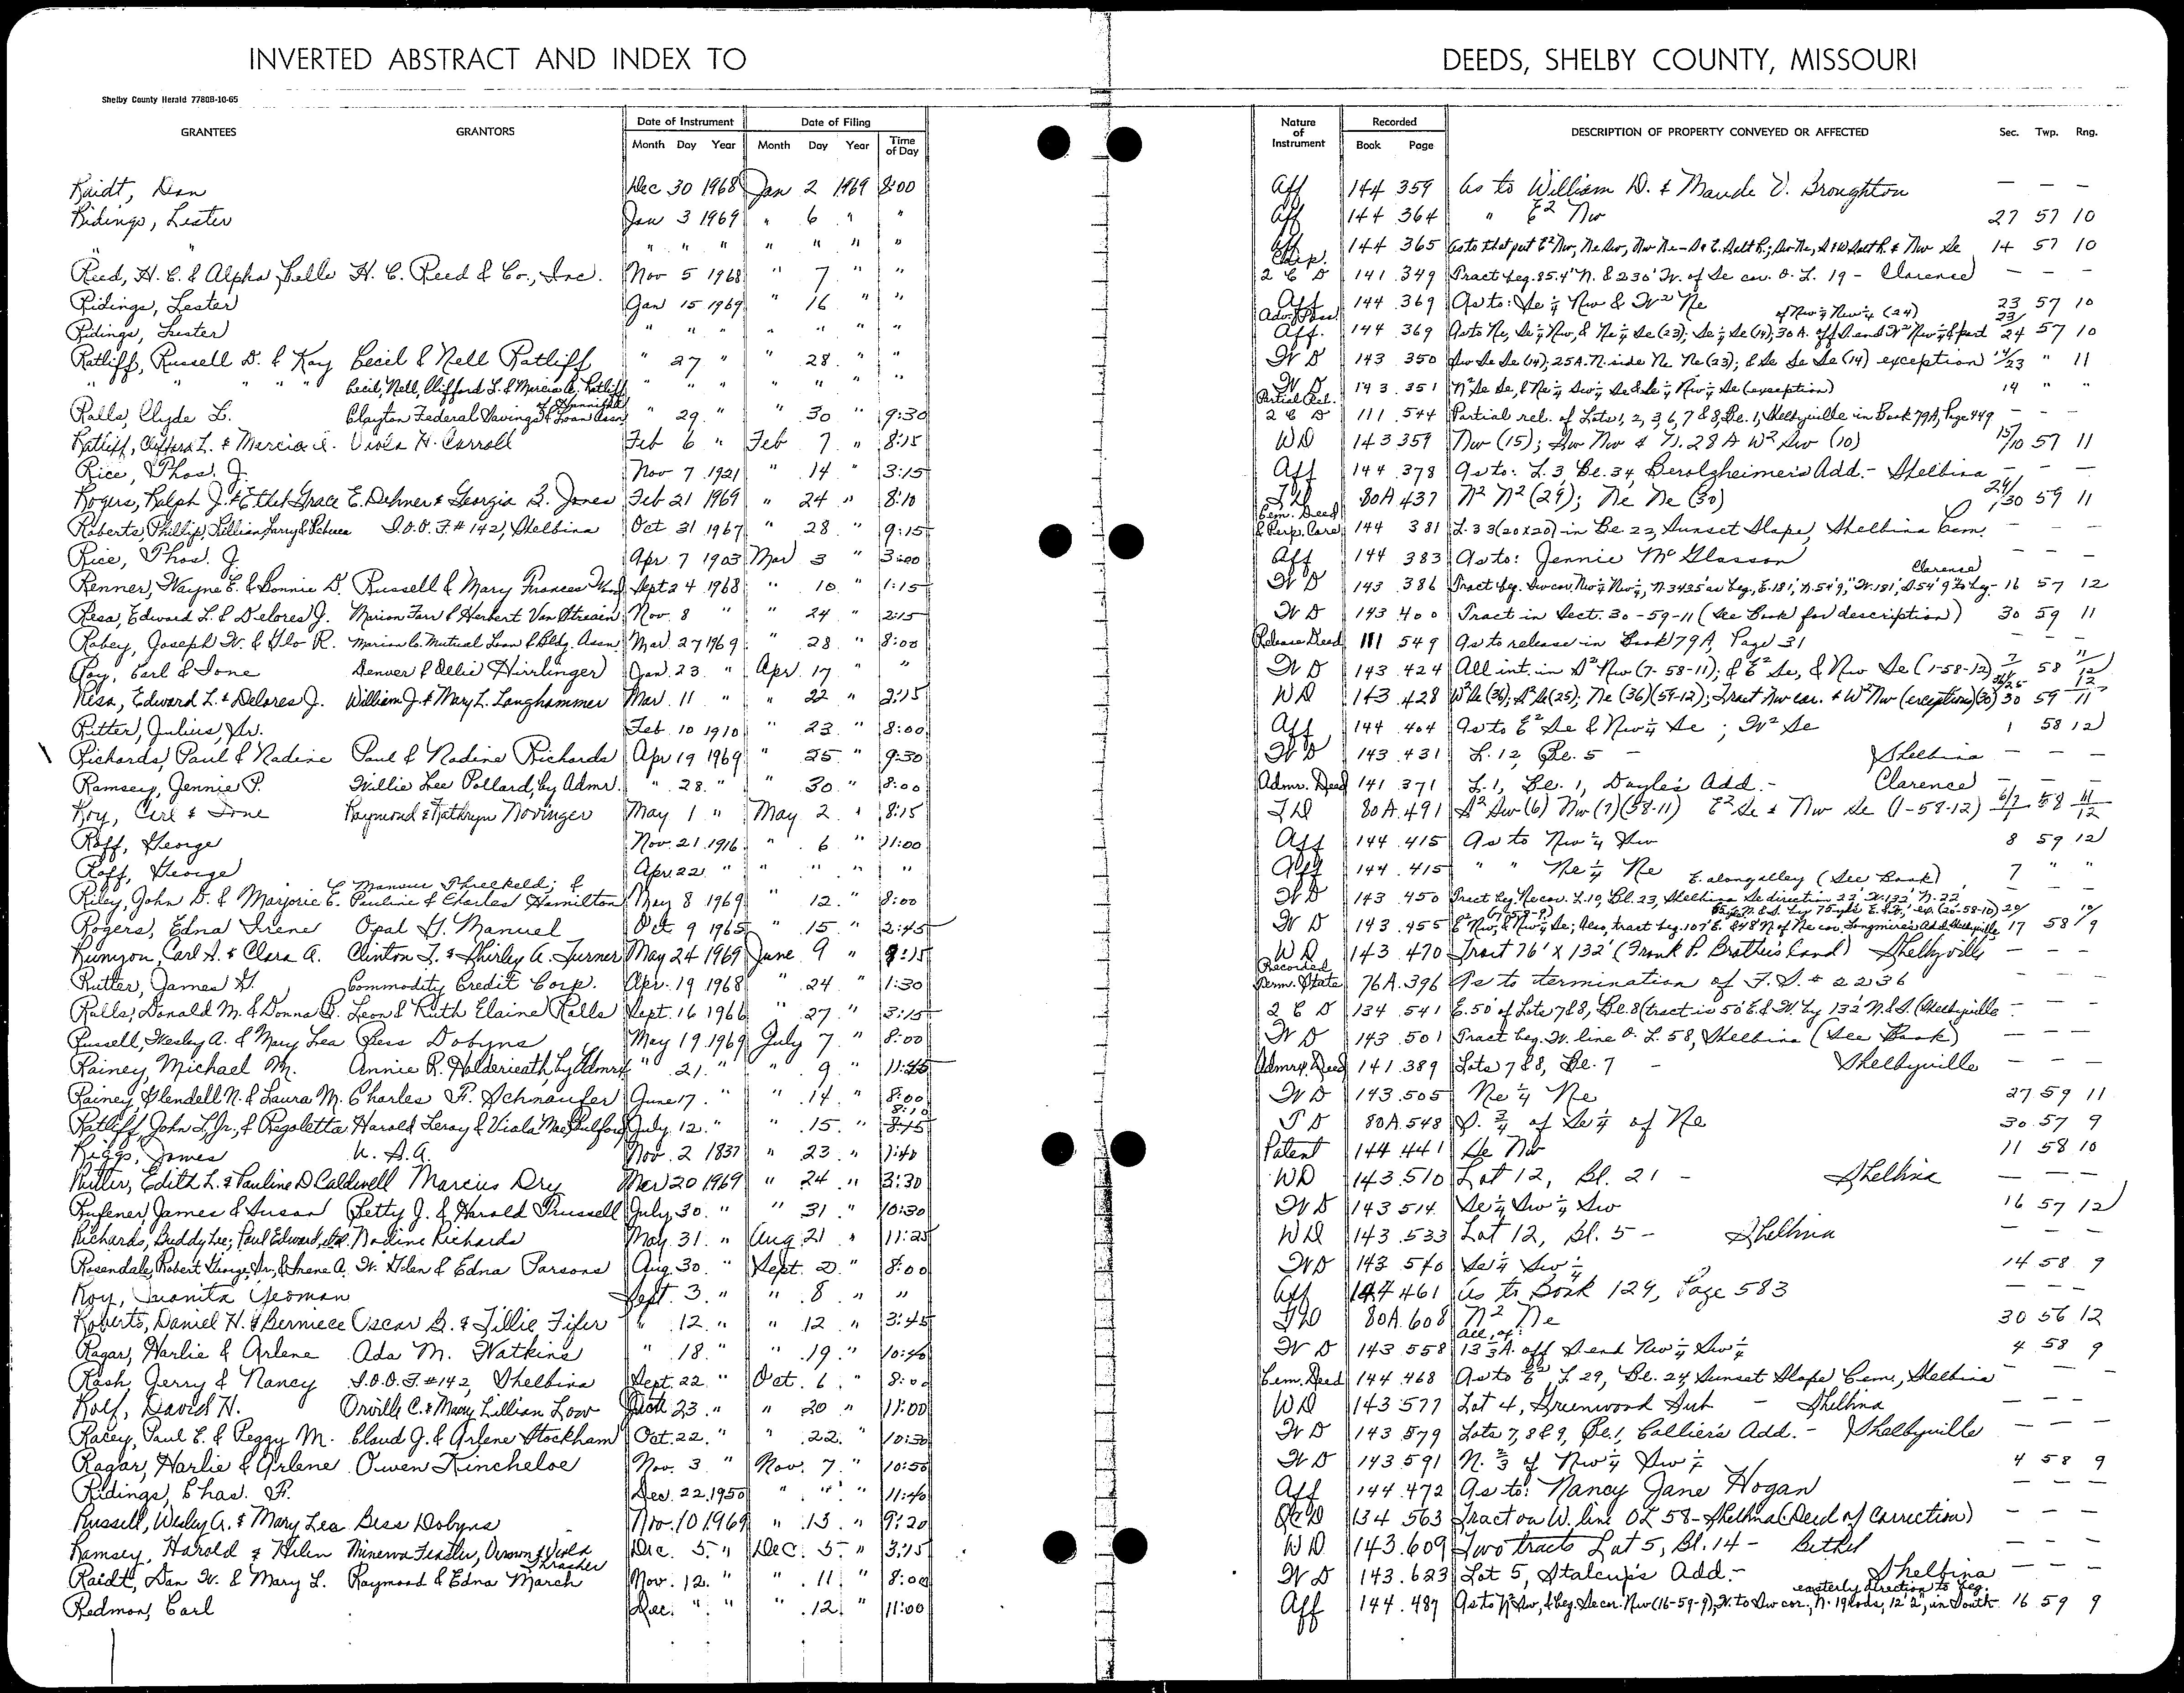 INVERTED ABSTRACT AND INDEX TO DEEDS, SHELBY COUNTY, MISSOURI
Shelby County Herald 7780B-10-65
GRANTEES GRANTORS Date of Instrument Date of Filing Nature of Instrument Recorded DESCRIPTION OF PROPERTY CONVEYED OR AFFECTED Sec. Twp. Rng.
Month Day Year Month Day Year Time of Day Book Page
Raidt, Dan Dec 30 1968 Jan 2 1969 8:00 Aff 144 359 As to William D. & Maude V. Broughton — — —
Ridings, Lester Jan 3 1969 " 6 " " Aff 144 364 " E2 Nw 27 57 10
" " " " " " " " " Aff 144 365 As to that part E2 Nw, Ne Sw, Nw Ne 14 57 10
Reed, H. C. & Alpha Belle H. C. Reed & Co., Inc. Nov 5 1968 " 7 " " Corp. 2 C D 141 349 Tract beg. 85.4" N. & 230' W. of Se cor. O. L. 19 - Clarence — — —
Ridings, Lester Jan 15 1969 " 16 " " Aff 144 369 As to: Se ¼ Nw & W2 Ne 23 57 10
Ridings, Lester " " " " " " " Adv. Poss Aff. 144 369 As to Ne, Se ¼ Nw, & Ne ¼ Se (23); Se ¼ Se (14); 30 A. off S. end W2 Nw ¼ & part of Nw ¼ Nw ¼ (24) 23/24 57 10
Ratliff, Russell D. & Kay Cecil & Nell Ratliff " 27 " " 28 " " W D 143 350 Sw Se Se (14); 25 A. N. side Ne Ne (23); E Se Se Se (14) exception 14/23 " 11
" " " " Cecil, Nell, Clifford L. & Marcia A. Ratliff " " " " " " " W D 143 351 N2 Se Se, & Ne ¼ Sw ¼ Se & Se ¼ Nw ¼ Se (exception) 14 " "
Ralls, Clyde L. Clayton Federal Savings & Loan Assn. of Hannibal " 29 " " 30 " 9:30 Partial Rel. 2 C D 111 544 Partial rel. of Lots 1, 2, 3, 6, 7 & 8, Bl. 1, Shelbyville in Book 79A, Page 449 — — —
Ratliff, Clifford L. & Marcia A. Viola H. Carroll Feb 6 " Feb 7 " 8:15 WD 143 359 Nw (15); Sw Nw & N. 28 A W2 Sw (10) 15/10 57 11
Rice, Thos. J. Nov 7 1921 " 14 " 3:15 Aff 144 378 As to: L. 3, Bl. 34, Berolzheimer's Add. - Shelbina — — —
Rogers, Ralph J. & Ethel Grace E. Dehner & Georgia B. Jones Feb 21 1969 " 24 " 8:10 T D 80A 437 N2 N2 (29); Ne Ne (30) 29/30 59 11
Roberts, Phillip, Lillian, Larry & Rebecca I.O.O.F. # 142, Shelbina Oct 31 1967 " 28 " 9:15 Cem. Deed & Perp. Care 144 381 L. 33 (20x20) in Bl. 22, Sunset Slope, Shelbina Cem. — — —
Rice, Thos. J. Apr 7 1903 Mar 3 " 3:00 Aff 144 383 As to: Jennie McGlasson — — —
Renner, Wayne E. & Bonnie D. Russell & Mary Frances Wood Sept 24 1968 " 10 " 1:15 W D 143 386 Tract beg. Sw cor. Nw ¼ Nw ¼, N. 343.5' as beg., E. 181', N. 54' 9", W. 181', S. 54' 9" to beg. - Clarence 16 57 12
Resa, Edward L. & Delores J. Marion Farr & Herbert Van Strein Nov. 8 " " 24 " 2:15 W D 143 400 Tract in Sect. 30-59-11 (See Book for description) 30 59 11
Robey, Joseph W. & Flo R. Marion Co. Mutual Loan & Bldg. Assn Mar 27 1969 " 28 " 8:00 Release Deed 111 549 As to release in Book 79A, Page 31 — —
Roy, Carl & Ione Denver & Ollie Hirrlinger Jan. 23 " Apr. 17 " " W D 143 424 All int. in S2 Nw (7-58-11); & E2 Se, & Nw Se (1-58-12) 7/1 58 11/12
Resa, Edward L. & Delores J. William J. & Mary L. Langhammer Mar. 11 " " 22 " 2:15 WD 143 428 W2 Se (36); S2 Se (25); Ne (36) (59-12); Tract Nw cor. & W2 Nw (exceptions) (30) 30 59 11
Ritter, Julius, Sr. Feb. 10 1910 " 23 " 8:00 Aff 144 404 As to E2 Se & Nw ¼ Se; W2 Se 1 58 12
Richards, Paul & Nadine Paul & Nadine Richards Apr 19 1969 " 25 " 9:30 W D 143 431 L. 12, Bl. 5 - Shelbina — — —
Ramsey, Jennie P. Willie Lee Pollard, by Admr. " 28 " " 30 " 8:00 Admr. Deed 141 371 L. 1, Bl. 1, Dayle's Add. - Clarence — — —
Roy, Carl & Ione Raymond & Kathryn Novinger May 1 " May 2 " 8:15 T D 80A 491 S2 Sw (6) Nw (7) (58-11) E2 Se & Nw Se (1-58-12) 6/7/1 58 11/12
Roff, George Nov. 21 1916 " 6 " 11:00 Aff 144 415 As to Nw ¼ Sw 8 59 12
Roff, George Apr 22 " " " " " Aff 144 415 " " Ne ¼ Ne 7 " "
Riley, John D. & Marjorie E. C. Manour Threlkeld; & Pauline & Charles Hamilton May 8 1969 " 12 " 8:00 W D 143 450 Tract beg. Ne cor. L. 10, Bl. 23, Shelbina Se direction 22', W. 132', N. 22, E. along alley (See Book) — — —
Rogers, Edna Irene Opal G. Manuel Oct 9 1965 " 15 " 2:45 W D 143 455 E2 Nw, & Nw ¼ Se; Also, tract beg. 107' E. & 48' N. of Ne cor. Longmire's Add. Shelbyville 20/17 58 10/9
Runyon, Carl A. & Clara A. Clinton T. & Shirley A. Turner May 24 1969 June 9 " 9:15 WD 143 470 Tract 76' x 132' (Frank P. Brother's Land) Shelbyville — — —
Rutter, James H. Commodity Credit Corp. Apr. 19 1968 " 24 " 1:30 Recorded Term. State 76A 396 As to termination of F. S. # 2236 — — —
Ralls, Donald M. & Donna R. Leon & Ruth Elaine Ralls Sept. 16 1966 " 27 " 3:15 2 C D 134 541 E. 50' of Lots 7 & 8, Bl. 8 (tract is 50' E. & W. by 132' N. & S. (Shelbyville - — — —
Russell, Wesley A. & Mary Lea Bess Dobyns May 19 1969 July 7 " 8:00 W D 143 501 Tract beg. W. line O. L. 58, Shelbina (See Book) — — —
Rainey, Michael M. Annie R. Holderieath, by Admrx " 21 " " 9 " 11:45 Admrx Deed 141 389 Lots 7 & 8, Bl. 7 - Shelbyville — — —
Rainey, Glendell N. & Laura M. Charles F. Schnaufer June 17 " " 14 " 8:00 W D 143 505 Ne ¼ Ne 27 59 11
Ratliff, John L. Jr., & Rigoletta Harold Leroy & Viola Mae Fulford July 12 " " 15 " 8:10 8:15 T D 80A 548 S. ¾ of Se ¼ of Ne 30 57 9
Riggs, James U. S. A. Nov. 2 1837 " 23 " 1:40 Patent 144 441 Se Nw 11 58 10
Rutter, Edith L. & Pauline D Caldwell Marcus Dry Mar 20 1969 " 24 " 3:30 WD 143 510 Lot 12, Bl. 21 - Shelbina — — —
Rufener, James & Susan Betty J. & Harold Prussell July 30 " " 31 " 10:30 W D 143 514 Se ¼ Sw ¼ Sw 16 57 12
Richards, Buddy Lee; Paul Edward, etal. Nadine Richards May 31 " Aug 21 " 11:25 WD 143 533 Lot 12, Bl. 5 - Shelbina — —
Rosendale, Robert George, Sr., & Irene A. W. Glen & Edna Parsons Aug. 30 " Sept. 2 " 8:00 W D 143 540 Se ¼ Sw ¼ 14 58 9
Roy, Juanita Yeoman Sept. 3 " " 8 " " Aff 144 461 As to Book 129, Page 583 — — —
Roberts, Daniel H. & Berniece Oscar B. & Tillie Fifer " 12 " " 12 " 3:45 T D 80A 608 N2 Ne 30 56 12
Ragar, Harlie & Arlene Ada M. Watkins " 18 " " 19 " 10:40 W D 143 558 All of: 13 ⅓ A. off S. end Nw ¼ Sw ¼ 4 58 9
Rash, Jerry & Nancy I.O.O.F. #142, Shelbina Sept. 22 " Oct. 6 " 8:00 Cem. Deed 144 468 As to E2 L 29, Bl. 24, Sunset Slope Cem., Shelbina — — —
Rolf, David H. Orville C. & Mary Lillian Low 23 " " 20 " 11:00 WD 143 577 Lot 4, Greenwood Sub - Shelbina — — —
Racey, Paul E. & Peggy M. Claud J. & Arlene Stockham Oct. 22 " " 22 " 10:30 W D 143 579 Lots 7, 8 & 9, Bl. 1, Collier's Add. - Shelbyville — — —
Ragar, Harlie & Arlene Owen Kincheloe Nov. 3 " Nov. 7 " 10:50 W D 143 591 N. ⅔ of Nw ¼ Sw ¼ 4 58 9
Ridings, Chas. F. Dec. 22 1950 " " " 11:40 Aff 144 472 As to: Nancy Jane Hogan — — —
Russell, Wesley A. & Mary Lea Bess Dobyns Nov. 10 1969 " 13 " 9:20 QCD 134 563 Tract on W. line OL 58 - Shelbina (Deed of Correction) — — —
Ramsey, Harold & Helen Minerva Feaster, Vernon & Viola Thrasher Dec. 5 " Dec. 5 " 3:15 WD 143 609 Two tracts Lot 5, Bl. 14 - Bethel — — —
Raidt, Dan W. & Mary L. Raymond & Edna March Nov. 12 " " 11 " 8:00 W D 143 623 Lot 5, Stalcup's Add. - Shelbina — — —
Redmon, Carl Dec. " " " 12 " 11:00 Aff 144 487 As to N2 Sw, & beg. Se cor. Nw (16-59-9), W. to Sw cor., N. 19 rods, 12' 2", in South easterly direction to beg. 16 59 9